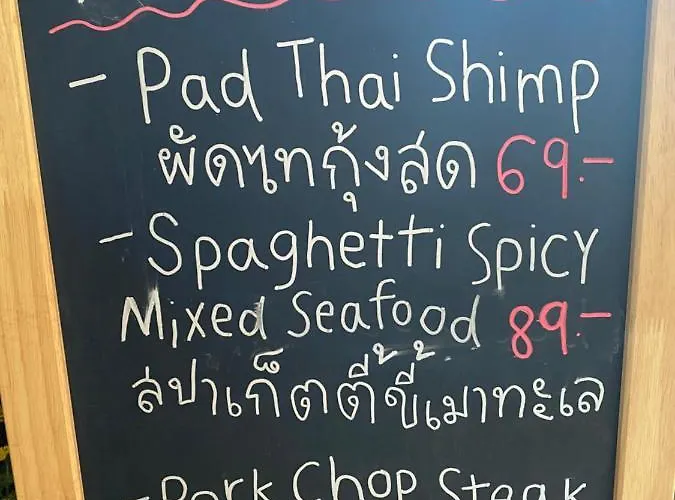 - Pad Thai Shimp
ผัดไทกุ้งสด 69.-
- Spaghetti Spicy
Mixed Seafood 89.-
สปาเก็ตตี้ขี้เมาทะเล
- Pork Chop Steak